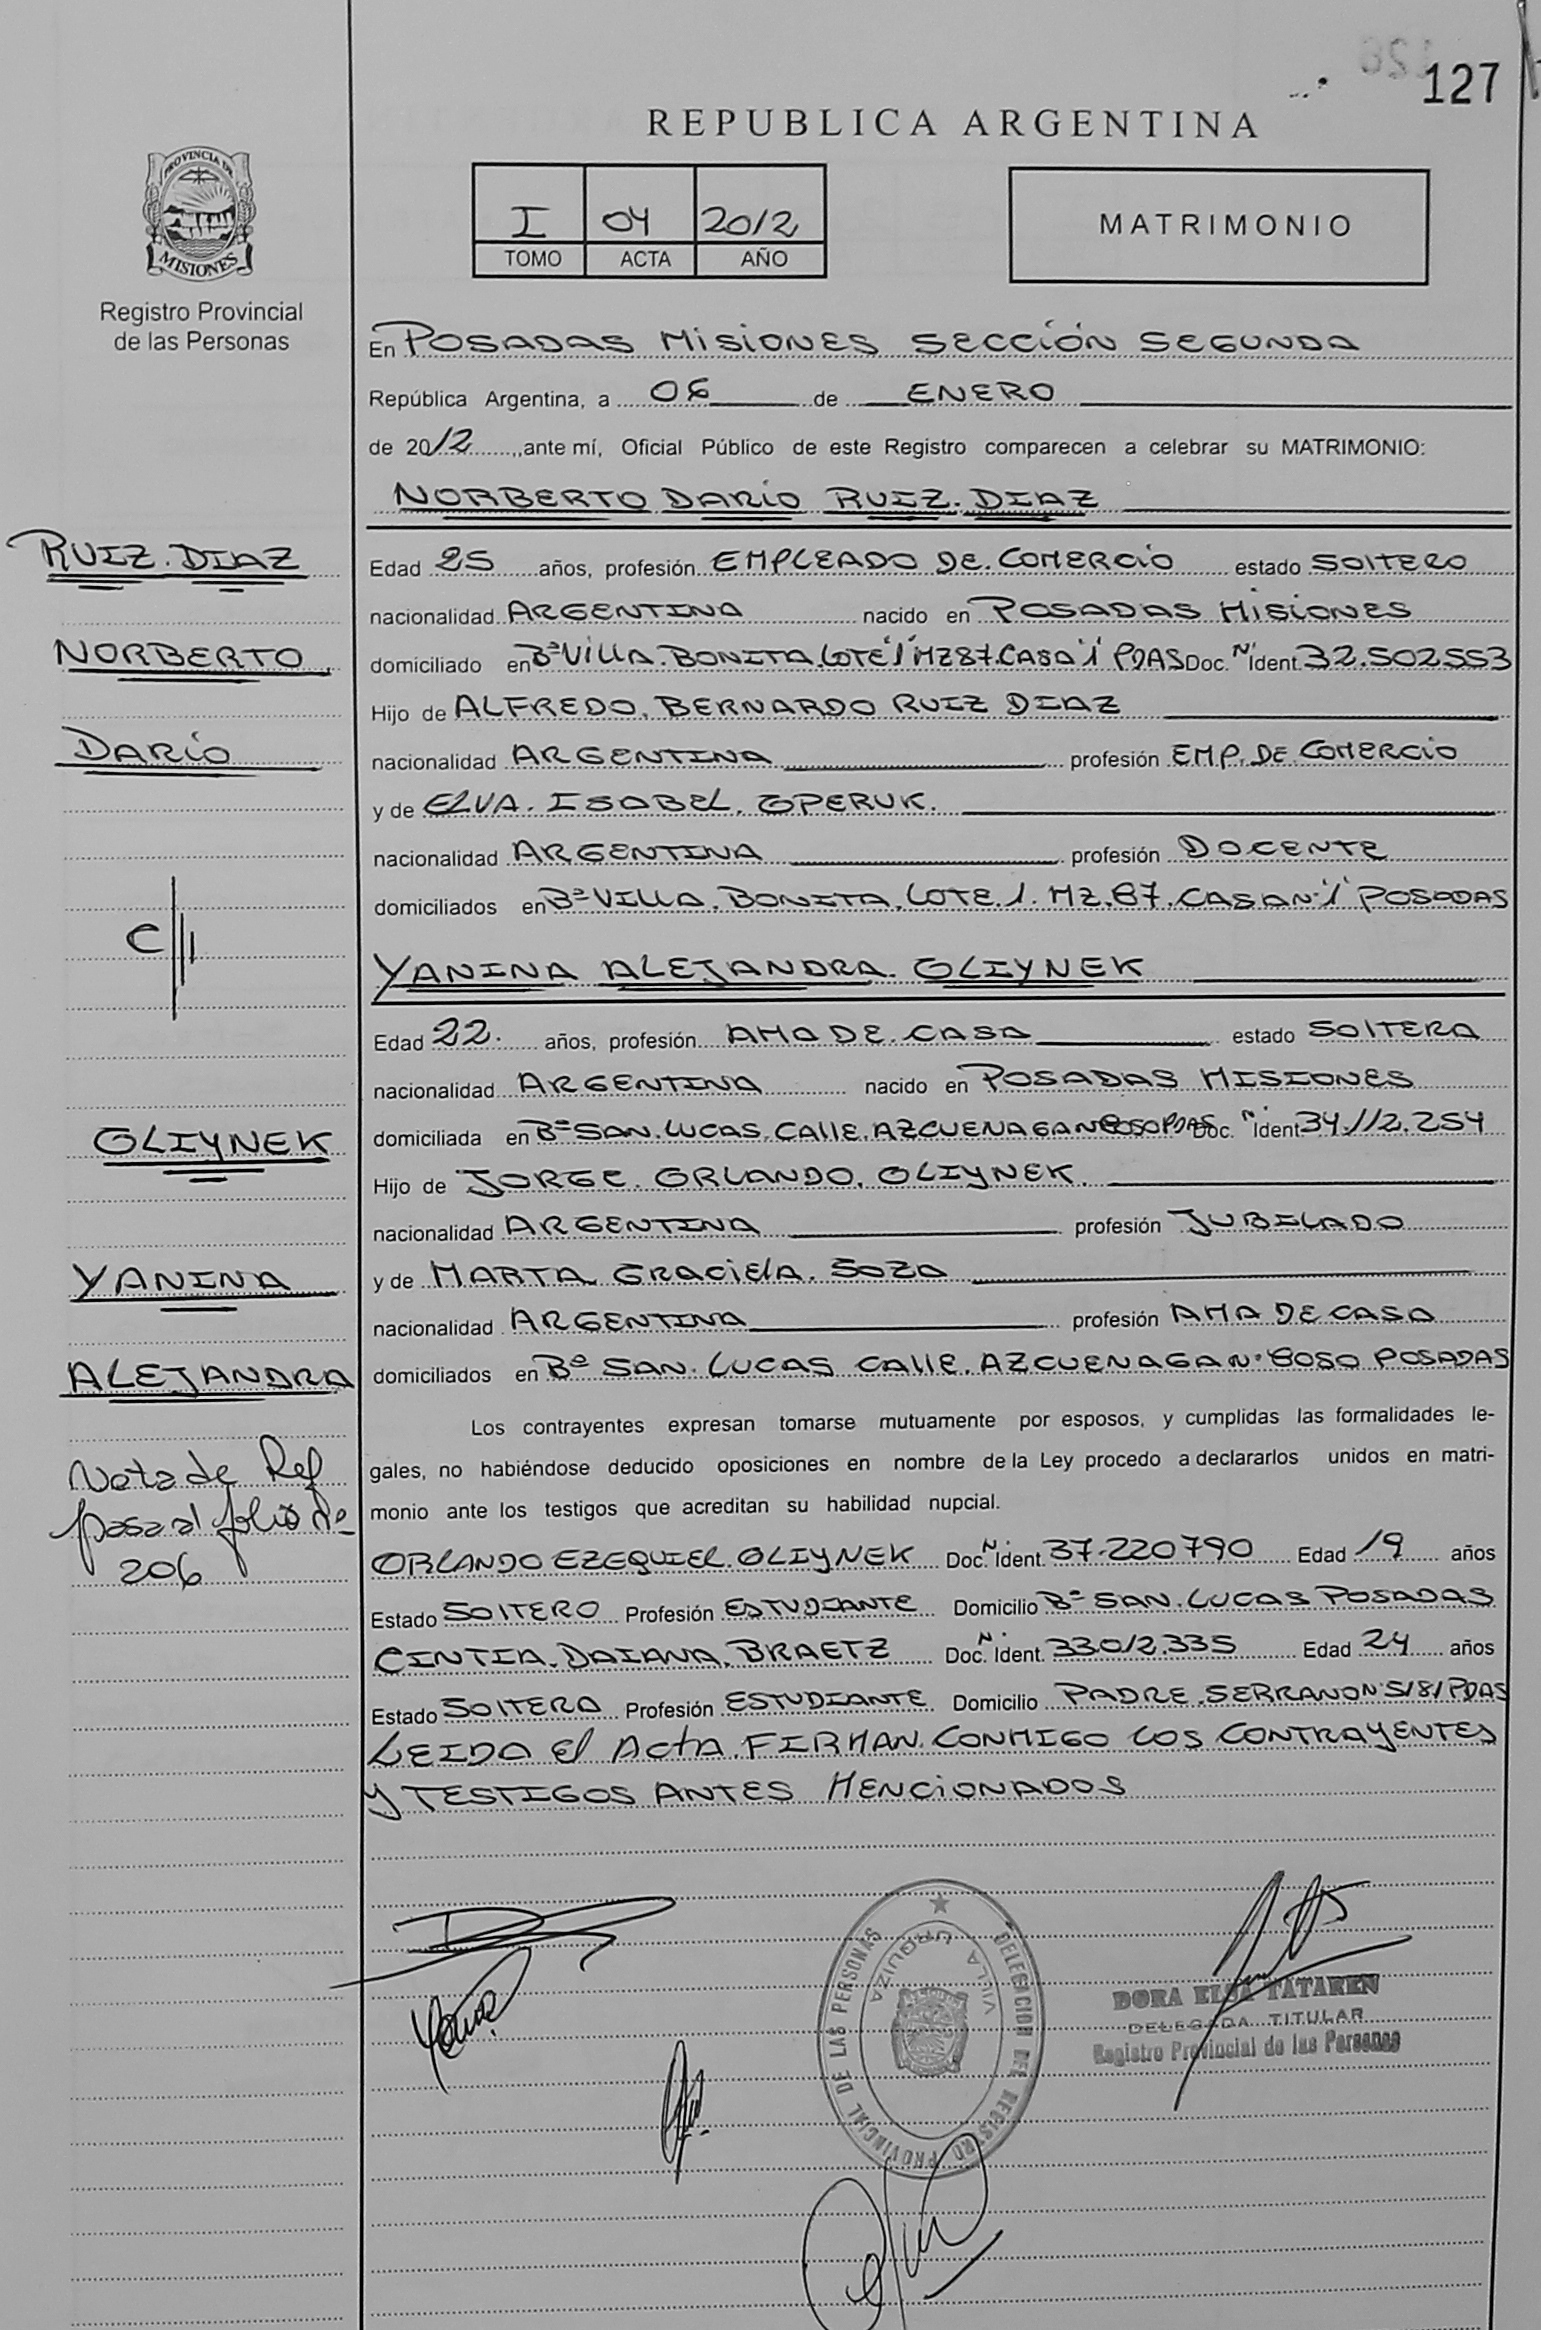 127
REPUBLICA ARGENTINA
PROVINCIA DE
MISIONES
Registro Provincial
de las Personas
I 04 2012
TOMO ACTA AÑO
MATRIMONIO
En POSADAS MISIONES SECCIÓN SEGUNDA
República Argentina, a 06 de ENERO
de 2012, ante mí, Oficial Público de este Registro comparecen a celebrar su MATRIMONIO:
NORBERTO DARÍO RUIZ. DIAZ
RUIZ. DIAZ
Edad 25 años, profesión EMPLEADO DE. COMERCIO estado SOLTERO
nacionalidad ARGENTINA nacido en POSADAS MISIONES
NORBERTO
domiciliado en Bº VILLA. BONITA, LOTE 1 MZ 87. CASA 1 PDAS Doc. Nº Ident. 32.502.553
Hijo de ALFREDO. BERNARDO RUIZ DIAZ
DARÍO
nacionalidad ARGENTINA profesión EMP. DE. COMERCIO
y de ELVA. ISABEL. OPERUK.
nacionalidad ARGENTINA profesión DOCENTE
domiciliados en Bº VILLA. BONITA. LOTE. 1. MZ. 87. CASA Nº 1 POSADAS
C
YANINA ALEJANDRA. OLIYNEK
Edad 22. años, profesión AMA DE. CASA estado SOLTERA
nacionalidad ARGENTINA nacido en POSADAS MISIONES
OLIYNEK
domiciliada en Bº SAN. LUCAS. CALLE. AZCUENAGA Nº 8050 PDAS Doc. Nº Ident. 34.112.254
Hijo de JORGE. ORLANDO. OLIYNEK.
nacionalidad ARGENTINA profesión JUBILADO
YANINA
y de MARTA GRACIELA. SOZA
nacionalidad ARGENTINA profesión AMA DE CASA
ALEJANDRA
domiciliados en Bº SAN. LUCAS CALLE. AZCUENAGA Nº 8050 POSADAS
Los contrayentes expresan tomarse mutuamente por esposos, y cumplidas las formalidades le-
gales, no habiéndose deducido oposiciones en nombre de la Ley procedo a declararlos unidos en matri-
monio ante los testigos que acreditan su habilidad nupcial.
Nota de Ref
pasa al folio
206
ORLANDO EZEQUIEL. OLIYNEK Doc. Nº Ident. 37.220790 Edad 19 años
Estado SOLTERO Profesión ESTUDIANTE Domicilio Bº SAN. LUCAS POSADAS
CINTIA. DAIANA. BRAETZ Doc. Nº Ident. 33012.335 Edad 24 años
Estado SOLTERA Profesión ESTUDIANTE Domicilio PADRE. SERRANO Nº 5181 PDAS
LEIDA El Acta. FIRMAN. CONMIGO LOS CONTRAYENTES
Y TESTIGOS ANTES MENCIONADOS
DELEGACION DEL REGISTRO PROVINCIAL DE LAS PERSONAS
VILLA URQUIZA
DORA ELSA TATAREN
DELEGADA TITULAR
Registro Provincial de las Personas